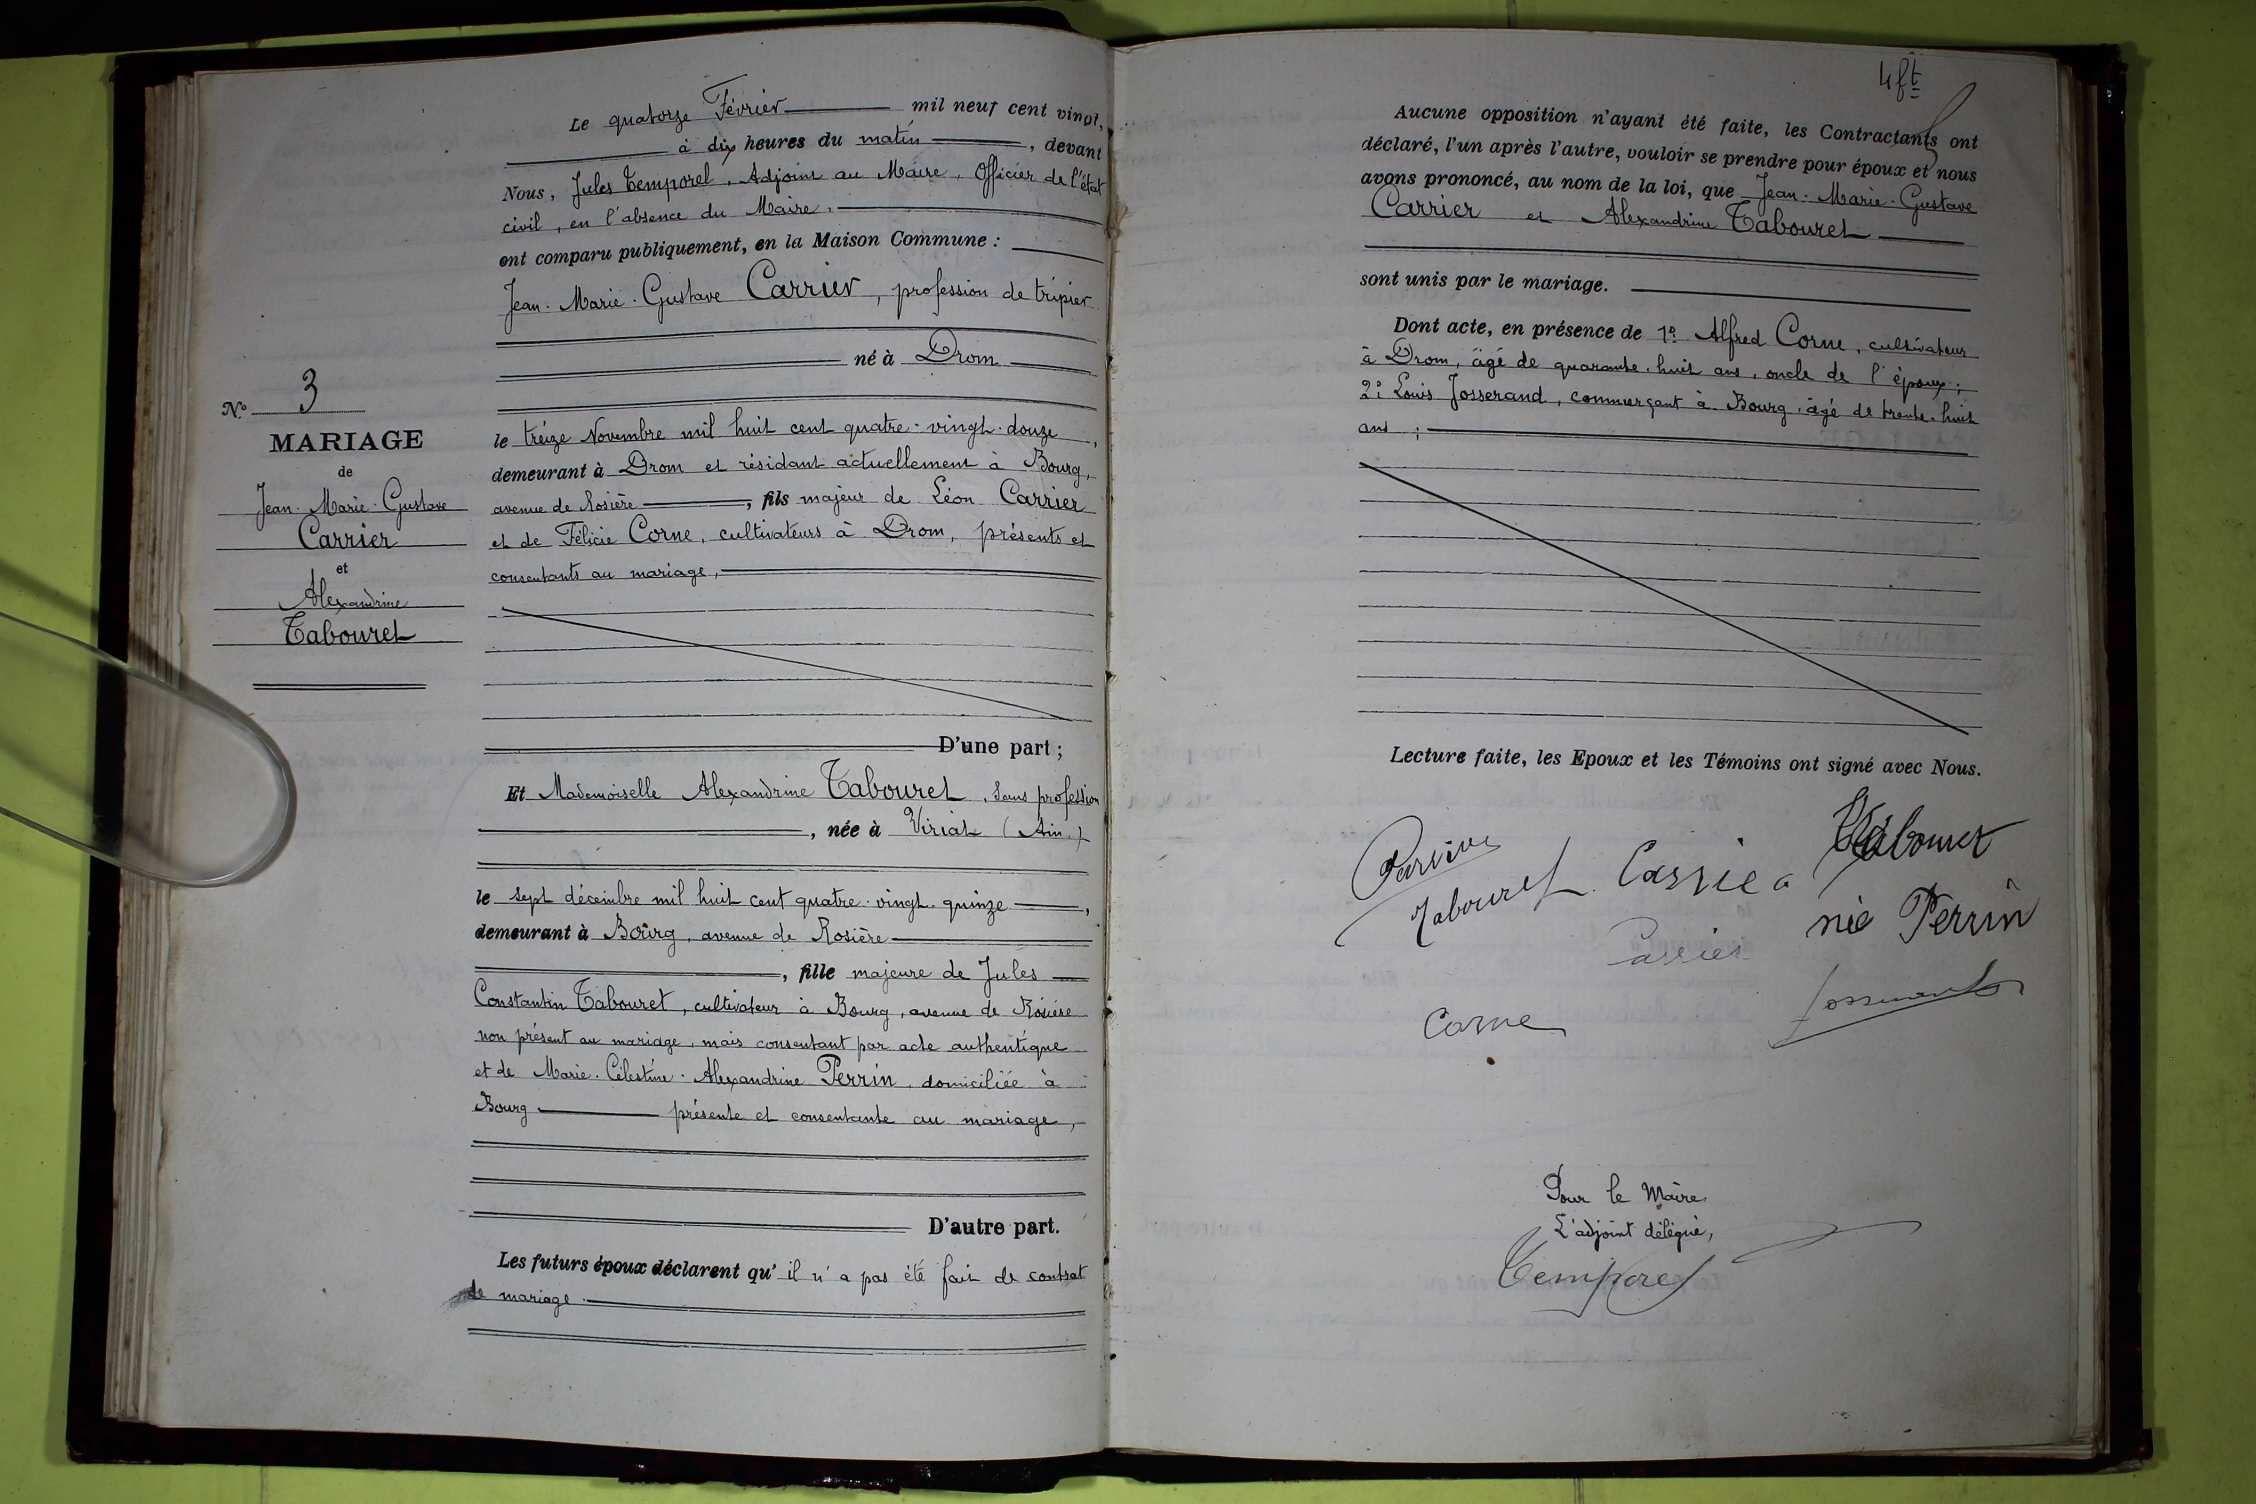 Le quatorze Février mil neuf cent vingt,
à dix heures du matin, devant
Nous, Jules Temporel, Adjoint au Maire, Officier de l'état
civil, en l'absence du Maire,
ont comparu publiquement, en la Maison Commune :
Jean-Marie-Gustave Carrier, profession de tripier
né à Drom
N° 3
MARIAGE
de
Jean-Marie-Gustave
Carrier
et
Alexandrine
Tabouret
le treize Novembre mil huit cent quatre-vingt-douze,
demeurant à Drom et résidant actuellement à Bourg,
avenue de Rosière, fils majeur de Léon Carrier
et de Félicie Corne, cultivateurs à Drom, présents et
consentants au mariage,
D'une part ;
Et Mademoiselle Alexandrine Tabouret, sans profession
, née à Viriat (Ain.)
le sept décembre mil huit cent quatre-vingt-quinze,
demeurant à Bourg, avenue de Rosière
, fille majeure de Jules
Constantin Tabouret, cultivateur à Bourg, avenue de Rosière
non présent au mariage, mais consentant par acte authentique
et de Marie-Célestine-Alexandrine Perrin, domiciliée à
Bourg présente et consentante au mariage,
D'autre part.
Les futurs époux déclarent qu'il n'a pas été fait de contrat
de mariage.
4 ft
Aucune opposition n'ayant été faite, les Contractants ont
déclaré, l'un après l'autre, vouloir se prendre pour époux et nous
avons prononcé, au nom de la loi, que Jean-Marie-Gustave
Carrier et Alexandrine Tabouret
sont unis par le mariage.
Dont acte, en présence de 1° Alfred Corne, cultivateur
à Drom, âgé de quarante-huit ans, oncle de l'époux ;
2° Louis Josserand, commerçant à Bourg, âgé de trente-huit
ans ;
Lecture faite, les Epoux et les Témoins ont signé avec Nous.
Carrier
Tabouret
Tabouret
née Perrin
Carrier
Corne
Josserand
Pour le Maire
L'adjoint délégué,
Temporel